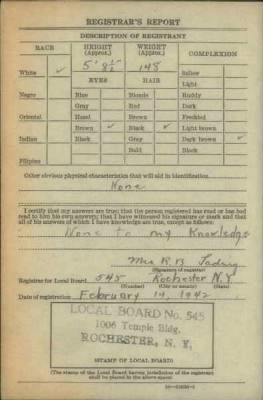 REGISTRAR'S REPORT
DESCRIPTION OF REGISTRANT
RACE HEIGHT (Approx.) WEIGHT (Approx.) COMPLEXION
White ✓ 5' 8½" 148 Sallow
EYES HAIR Light
Negro Blue Blonde Ruddy
Gray Red Dark
Oriental Hazel Brown Freckled
Brown ✓ Black ✓ Light brown
Indian Black Gray Dark brown ✓
Bald Black
Filipino
Other obvious physical characteristics that will aid in identification
None
I certify that my answers are true; that the person registered has read or has had
read to him his own answers; that I have witnessed his signature or mark and that
all of his answers of which I have knowledge are true, except as follows:
None to my Knowledge
Mrs R. B.
(Signature of registrar)
Registrar for Local Board 545 Rochester N.Y.
(Number) (City or county) (State)
Date of registration February 14, 1942
LOCAL BOARD No. 545
1006 Temple Bldg.
ROCHESTER, N. Y.
(STAMP OF LOCAL BOARD)
(The stamp of the Local Board having jurisdiction of the registrant
shall be placed in the above space)